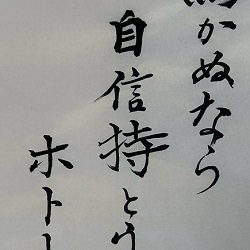 かぬなら
自信持とう
ホトー